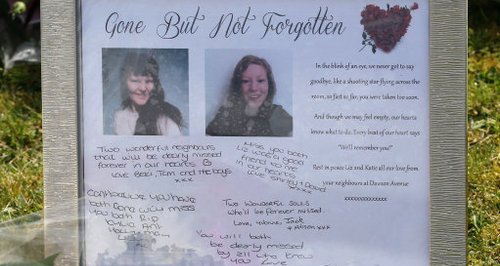 Gone But Not Forgotten
In the blink of an eye, we never got to say
goodbye, like a shooting star flying across the
room, so fast so far, you were taken too soon.
And though we may feel empty, our hearts
know what to do. Every beat of our heart says
"We'll remember you!"
Rest in peace Liz and Katie all our love from
your neighbours at Dawson Avenue
xxxxxxxxxxxxx
Two wonderful neighbours
that will be dearly missed
forever in our hearts
Love Beci, Tom and the boys
xxx
Miss you both
Liz was a good
friend to me
in our hearts
Love Shirley + David
xxxxx
you have
both gone will miss
you both R.I.P
Two Wonderful Souls
Who'll be forever missed.
Love, Jack
xxx
You will both
be dearly missed
by all who knew
you Love